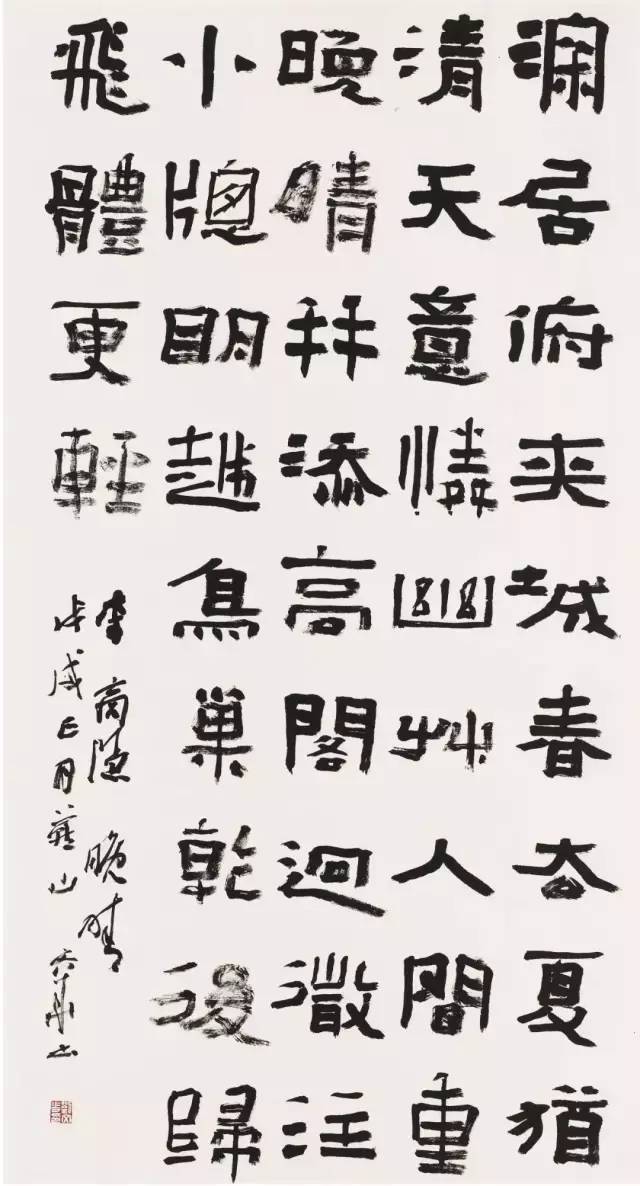 深居俯夾城春去夏猶
清天意憐幽艸人間重
晚晴并添高閣迥微注
小牕明越鳥巢乾後歸
飛體更輕
李商隱 晚晴
戊戌正月 山